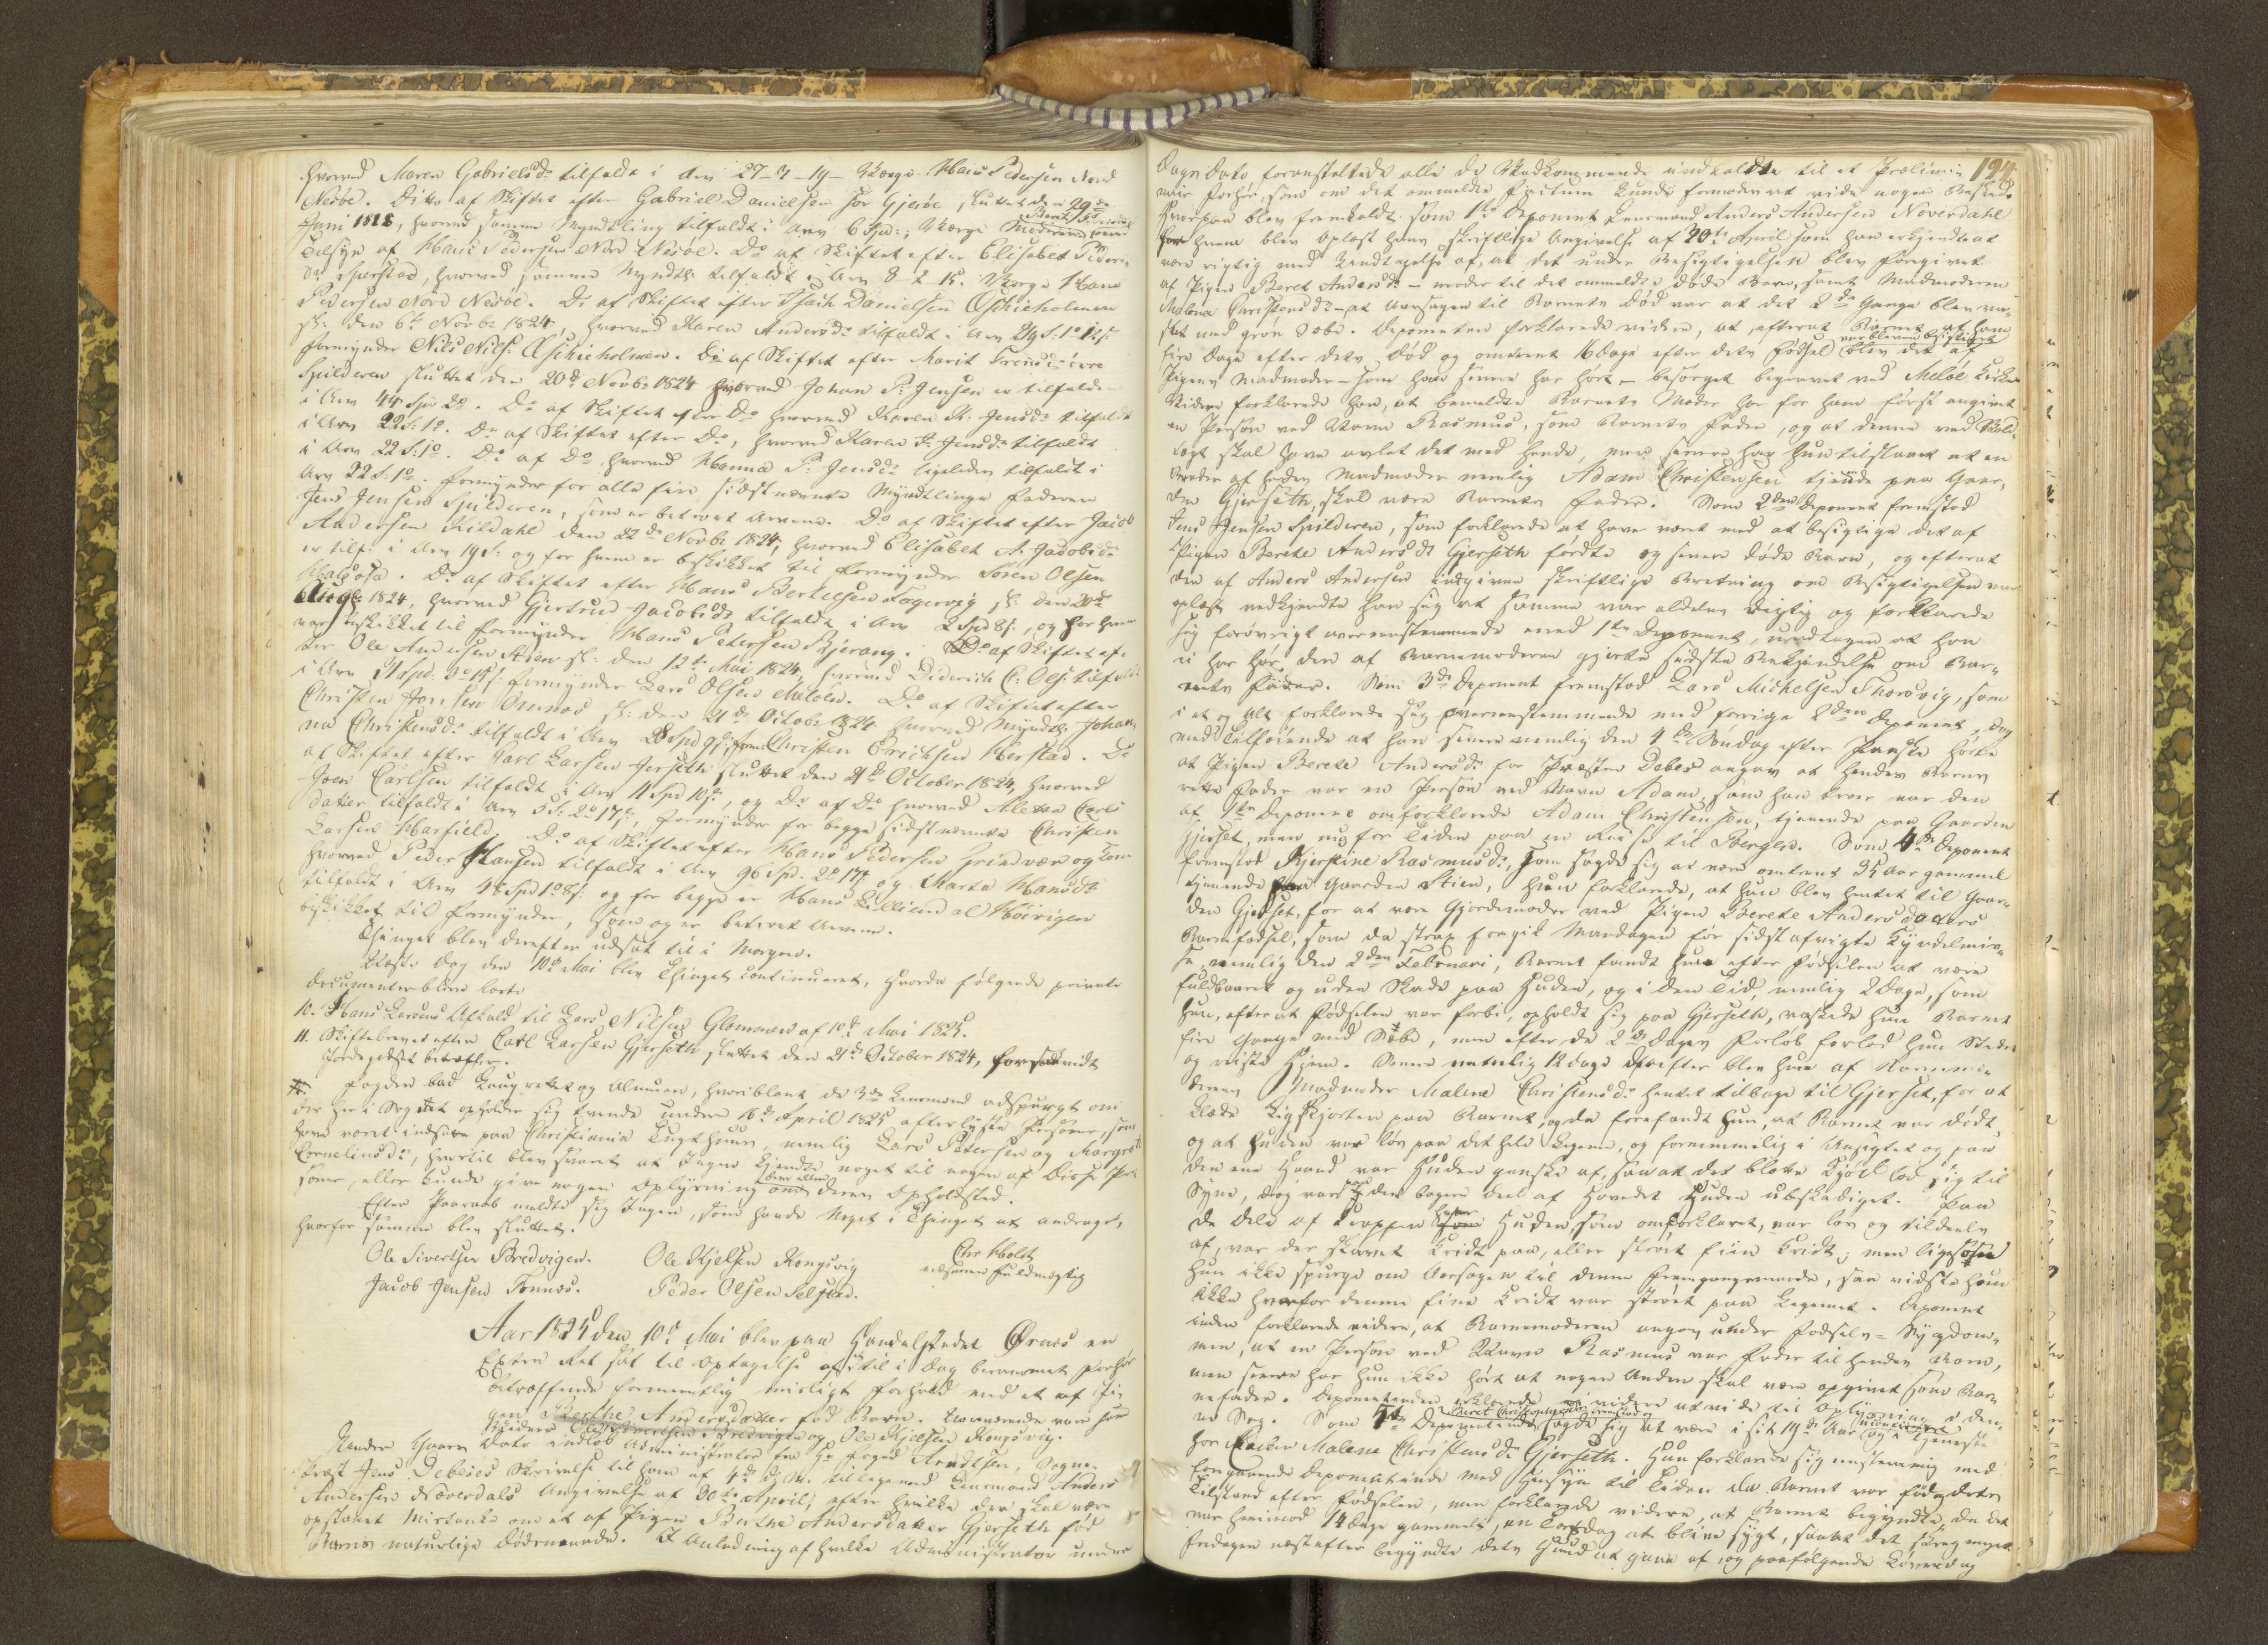 hvorved Maren Gabrielsdr tilfaldt i Arv 27-3-19- Værge Hans Pedersen Nord
Nesöe. Ditto af Skiftet efter Gabriel Danielsen Gjeröe, sluttet den 29de
Juni 1818, hvorved samme Myndtling tilfaldt i Arv 6 Spd:, Værge Moderen under
Tilsyn af Hans Pedersen Nord Nesöe. Do af Skiftet efter Elisabet Peders-
dr hvorved samme Myndtl: tilfaldt i Arv 8 - 2 - 15. Værge Hans
Pedersen Nord Nesöe. Do af Skiftet efter Isach Danielsen Eschieholmen
sl: den 6te Novbr 1824, hvorved Karen Andersdr tilfaldt i Arv 29 S: 1o 1s:
Formynder Nils Nils: Eschieholmen. Do af Skiftet efter Marit
Spilderen sluttet den 20de Novbr 1824 hvorved Johan P: Jensen er tilfalden
i Arv 44 Spd 2o. Do af Skiftet efter Do hvorved Karen M: Jensdr tilfaldt
i Arv 22 S: 1o. Do af Skiftet efter Do, hvorved Karen P: Jensdr tilfaldt
i Arv 22 S: 1o. Do af Do, hvorved Hanna P: Jensdr ligeledes tilfaldt i
Arv 22 S: 1o. Formynder for alle fire sidstnævnte Myndtlinge Faderen
Jens Jensen Spilderen, som er betroet Arvene. Do af Skiftet efter Jacob
Andersen Kildahl den 22de Novbr 1824, hvorved Elisabet A: Jacobsdr
er tilf: i Arv 19 S: og for hvem er beskikket til Formynder Sören Olsen
Do af Skiftet efter Hans Bertelsen Fagervig sl: den 20de
1824, hvorved Gjertrud Jacobsdr tilfaldt i Arv 2 Spd 8s:, og for hvem
var beskikket til Formynder Hans Petersen Bjerang. Do af Skiftet ef-
ter Ole Andersen Stien sl: den 12te Mai 1824, hvorved Diderich C: Ols: tilfaldt
i Arv Formynder Lars Olsen Do af Skiftet efter
Christen Jonsen Ömnæs sl: den 21de Octobr 1824 hvorved Myndtl: Johan-
na Christensdr tilfaldt i Arv 28 Spd 9s: Form: Christen Erichsen Herstad. Do
af Skiftet efter Carl Larsen Gjerseth sluttet den 21de October 1824, hvorved
Joen Carlsen tilfaldt i Arv 11 Spd 10s:, og Do af Do hvorved Aletta Carls
datter tilfaldt i Arv 5 S: 2o 17s:, Formynder for begge sidstnævnte Christen
Larsen Harfield. Do af Skiftet efter Hans Pedersen Grindvær og Kone
hvorved Peder Hansen tilfaldt i Arv 96 Spd. 2o 17s og Marta Hansdr
tilfaldt i Arv 48 Spd 1o 8s: og for begge er Hans al Höivigen
beskikket til Formynder, som og er betroet Arvene.
Thinget blev derefter udsat til i Morgen.
Næste Dag den 10de Mai blev Thinget continueret, hvorda følgende private
Documenter bleve læste
10. Hans Larsens Afkald til Lars Nilsen Glommen af 10de Mai 1825.
11. Skiftebrevet efter Carl Larsen Gjerseth sluttet den 21de October 1824, forsaavidt
Jordegodset betræffer.
Fogden bad Laugrettet og Almuen, hvoriblandt de 3de Lensmænd adspurgt om
der her i Sognet opholder sig tvende under 16de April 1825 efterlyste Personer, som
have været indsatte paa Christiania Tugthuus, nemlig Lars Petersen og Margrete
Cornelinsdr, hvortil blev svaret at Ingen kjendte noget til nogen af disse Per-
soner, eller kunde give nogen Oplysning om dem eller deres Opholdssted.
Efter Paaraab meldte sig Ingen, som havde Noget i Thinget at andrage,
hvorfor samme blev sluttet.
Ole Sivertsen Bredvigen. Ole Kjelsen Kongsvig Chr Holst
Jacob Jensen Tonnæs. Peder Olsen Selstad. edsvoren Fuldmægtig
Aar 1825 den 10de Mai blev paa Handelstedet Örnes en
Extra Ret sat til Optagelse af et til i Dag berammet Forhör
betræffende formeentlig misligt Forhold med et af Pi-
gen Berthe Andersdatter fød Barn. Laurettesmænd vare som
Vidner Ole Sivertsen Bredvigen og Ole Kjelsen Kongsvig.
Under Gaars Dato indlöb Administrator fra Hr Foged Arndtsen, Sogne-
præst Jens Debeses Skrivelse til ham af 4de d. M. tilligemed Lensmand Anders
Andersen Næverdals Angivelse af 30te April, efter hvilke der skal være
opstaaet Mistanke om et af Pigen Berthe Andersdatter Gjerseth fød
Barns naturlige Dødsmaade. I Anledning af hvilke Administrator under
124
Dags Dato foranstaltede alle de Vedkommende indkaldte til et Prælimi-
nair Forhör, som om det ommeldte Factum kunde formodes at vide nogen Besked.
Hvorpaa blev fremkaldt som 1ste Deponent Lensmand Anders Andersen Noverdahl
for hvem blev oplæst hans skriftlige Angivelse af 30te April som han erkjendte at
være rigtig med Undtagelse af, at det under Besigtigelsen blev foregivet
af Pigen Beret Andersdr - Moder til det ommeldte döde Barn, samt Madmoderen
Malena Christensdr - at Aarsagen til Barnets Död var at det 2de Gange blev va-
sket med grön Sæbe. Deponenten forklarede videre, at efterat Barnet af ham
fire Dage efter dets Död og omtrent 16 Dage efter dets Födsel var bleven besigtiget blev det af
Pigens Madmoder - som han senere har hørt - besörget begravet ved Melöe Kirke
Videre forklarede han, at bemeldte Barnets Moder har for ham først angivet
en Person ved Navn Rasmus, som Barnets Fader, og at denne ved Vold-
tægt skal have avlet det med hende, men senere har hun tilstaaet at en
Broder af hendes Madmoder nemlig Adam Christensen tjende paa Gaar-
den Gjerseth, skal være Barnets Fader. Som 2den Deponent fremstod
Jens Jensen Spilderen, som forklarede at have været med at besigtige det af
Pigen Berete Andersdr Gjerseth fördte og senere döde Barn, og efterat
den af Anders Andersen indgivne skriftlige Beretning om Besigtigelsen var
oplæst vedkjendte han sig at samme var aldeles rigtig og forklarede
sig forövrigt overeensstemmende med 1ste Deponent, undtagen at han
ei har hört den af Barnemoderen gjorte sidste Bekjendelse om Bar-
nets Fader. Som 3de Deponent fremstod Lars Michelsen Thorsvig, som
i et og Alt forklarede sig overeensstemmende med forrige 2den Deponent, dog
med Tilföiende at han senere nemlig den 4de Söndag efter Paaske hörte
at Pigen Berete Andersdr for Præsten Debes angav at hendes Barns
rette Fader var en Person ved Navn Adam, som han troer var den
af 1ste Deponent omforklarede Adam Christensen, tjenende paa Gaarden
Gjerset, men nu for Tiden paa en Reise til Bergen. Som 4de Deponent
fremstod Kjerstine Rasmusdr, som sagde sig at være omtrent 35 Aar gammel
tjenende paa Gaarden Stien, hun forklarede, at hun blev hentet til Gaar-
den Gjerset, for at være Gjordemoder ved Pigen Berete Andersdatters
Barnefödsel, som da strax foregik Mandagen før sidst afvigte Kyndelmis-
se, nemlig den 2den Februari, Barnet fandt hun efter Födselen at være
fuldbaaret og uden Skade paa Huden, og i den Tid, nemlig 2 Dage, som
hun, efter at Födselen var forbi, opholdt sig paa Gjerseth, vaskede hun Barnet
fire Gange med Sæbe, men efter de 2de Dages Forløb forlod hun Stedet
og reiste hjem. Senere nemlig 12 Dage derefter blev hun af Barnemo-
derens Madmoder Malene Christensdr hentet tilbage til Gjerset, for at
klæde Ligskjorten paa Barnet, og da forefandt hun, at Barnet var dödt,
og at Huden var lös paa det hele Legeme, og fornemmelig i Ansigtet og paa
den ene Haand var Huden ganske af, saa at det blotte Kjöd lod sig til
Syne, dog var paa den bagere Deel af Hovedet Huden ubeskadiget. Paa
de Dele af Kroppen hvor Huden, som omforklaret, var lös og tildeels
af, var der skavet Kridt paa, eller ströet fiin Kridt; men ligesom
hun ikke spurgte om Aarsagen til denne Fremgangsmaade, saa vidste hun
ikke hvorfor denne fine Kridt var ströet paa Legemet. Deponent
inden forklarede videre, at Barnemoderen angav under Födsels-Sygdom-
men, at en Person ved Navn Rasmus var Fader til hendes Barn,
men senere har hun ikke hört at nogen Anden skal være opgivet som Bar-
nefader. Deponentinden erklærede ei videre at vide til Oplysning i den-
ne Sag. Som 5te Deponentinde Beret Christophersdr fremstod, sagde sig at være i sit 19de Aar og i Tjeneste
hos Enken Malene Christensdr Gjerseth. Hun forklarede sig eensstemmig med
foregaaende Deponentinde med Hensyn til Tiden da Barnet var föd og dets
Tilstand efter Födselen, men forklarede videre, at Barnet begyndte, da det
var henimod 14 Dage gammelt, en Torsdag at blive sygt, saaat det skreg meget
Fredagen næstefter begyndte dets Hud at gaae af, og paafölgende Löverdag